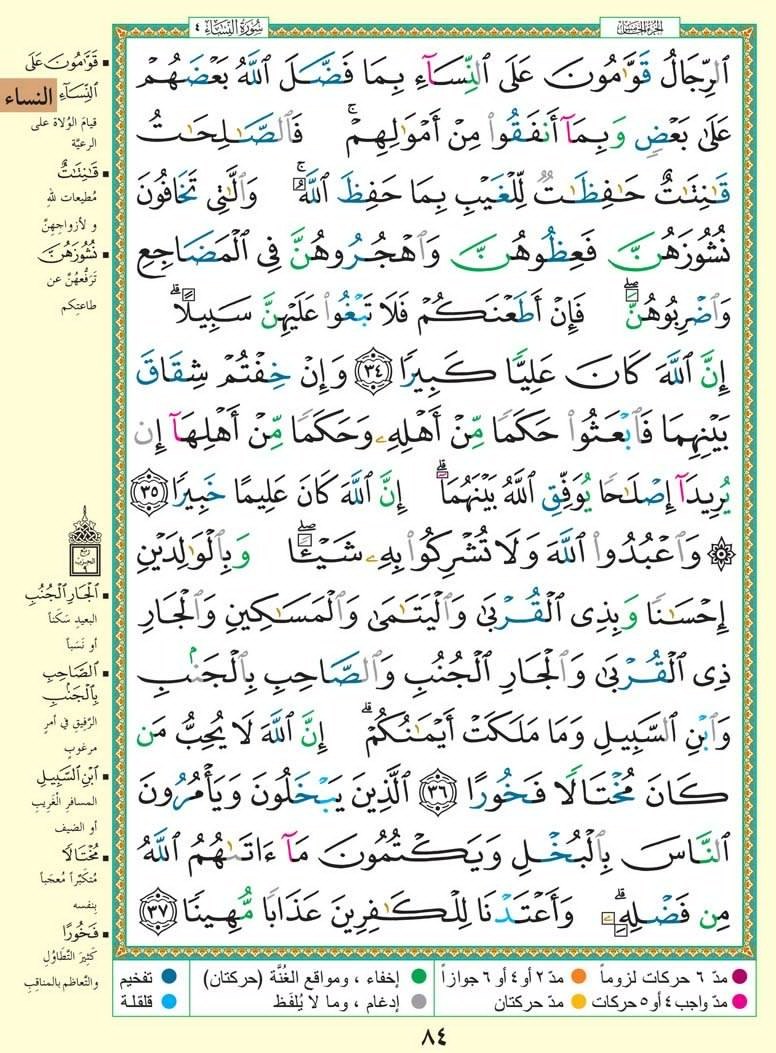 الجزء الخامس
سُورَةُ النِّسَاءِ ٤
ٱلرِّجَالُ قَوَّٰمُونَ عَلَى ٱلنِّسَآءِ بِمَا فَضَّلَ ٱللَّهُ بَعْضَهُمْ
عَلَىٰ بَعْضٍ وَبِمَآ أَنفَقُوا۟ مِنْ أَمْوَٰلِهِمْ ۚ فَٱلصَّـٰلِحَـٰتُ
قَـٰنِتَـٰتٌ حَـٰفِظَـٰتٌ لِّلْغَيْبِ بِمَا حَفِظَ ٱللَّهُ ۚ وَٱلَّـٰتِى تَخَافُونَ
نُشُوزَهُنَّ فَعِظُوهُنَّ وَٱهْجُرُوهُنَّ فِى ٱلْمَضَاجِعِ
وَٱضْرِبُوهُنَّ ۖ فَإِنْ أَطَعْنَكُمْ فَلَا تَبْغُوا۟ عَلَيْهِنَّ سَبِيلًا ۗ
إِنَّ ٱللَّهَ كَانَ عَلِيًّا كَبِيرًا ٣٤ وَإِنْ خِفْتُمْ شِقَاقَ
بَيْنِهِمَا فَٱبْعَثُوا۟ حَكَمًا مِّنْ أَهْلِهِۦ وَحَكَمًا مِّنْ أَهْلِهَآ إِن
يُرِيدَآ إِصْلَـٰحًا يُوَفِّقِ ٱللَّهُ بَيْنَهُمَآ ۗ إِنَّ ٱللَّهَ كَانَ عَلِيمًا خَبِيرًا ٣٥
۞ وَٱعْبُدُوا۟ ٱللَّهَ وَلَا تُشْرِكُوا۟ بِهِۦ شَيْـًٔا ۖ وَبِٱلْوَٰلِدَيْنِ
إِحْسَـٰنًا وَبِذِى ٱلْقُرْبَىٰ وَٱلْيَتَـٰمَىٰ وَٱلْمَسَـٰكِينِ وَٱلْجَارِ
ذِى ٱلْقُرْبَىٰ وَٱلْجَارِ ٱلْجُنُبِ وَٱلصَّاحِبِ بِٱلْجَنۢبِ
وَٱبْنِ ٱلسَّبِيلِ وَمَا مَلَكَتْ أَيْمَـٰنُكُمْ ۗ إِنَّ ٱللَّهَ لَا يُحِبُّ مَن
كَانَ مُخْتَالًا فَخُورًا ٣٦ ٱلَّذِينَ يَبْخَلُونَ وَيَأْمُرُونَ
ٱلنَّاسَ بِٱلْبُخْلِ وَيَكْتُمُونَ مَآ ءَاتَىٰهُمُ ٱللَّهُ
مِن فَضْلِهِۦ ۗ وَأَعْتَدْنَا لِلْكَـٰفِرِينَ عَذَابًا مُّهِينًا ٣٧
قَوَّٰمُونَ عَلَى
ٱلنِّسَآءِ
النساء
قيامَ الوُلاة على
الرعيَّة
قَـٰنِتَـٰتٌ
مُطيعات لله
و لأزواجِهِنَّ
نُشُوزَهُنَّ
تَرَفُّعَهُنَّ عن
طاعتِكم
ربع
الحزب
٩
ٱلْجَارِ ٱلْجُنُبِ
البعيدِ سَكَناً
أو نَسَباً
ٱلصَّاحِبِ
بِٱلْجَنۢبِ
الرَّفيقِ في أمرٍ
مرغوبٍ
ٱبْنِ ٱلسَّبِيلِ
المسافرِ الغَريبِ
أو الضيف
مُخْتَالًا
مُتكبِّراً مُعجَباً
بنفسه
فَخُورًا
كَثيرَ التَّطاوُلِ
والتَّعاظم بالمناقِبِ
مدّ ٦ حركات لزوماً مدّ ٢ أو ٤ أو ٦ جوازاً إخفاء ، ومواقع الغُنَّة (حركتان) تفخيم
مدّ واجب ٤ أو ٥ حركات مدّ حركتان إدغام ، وما لا يُلفَظ قلقلة
٨٤